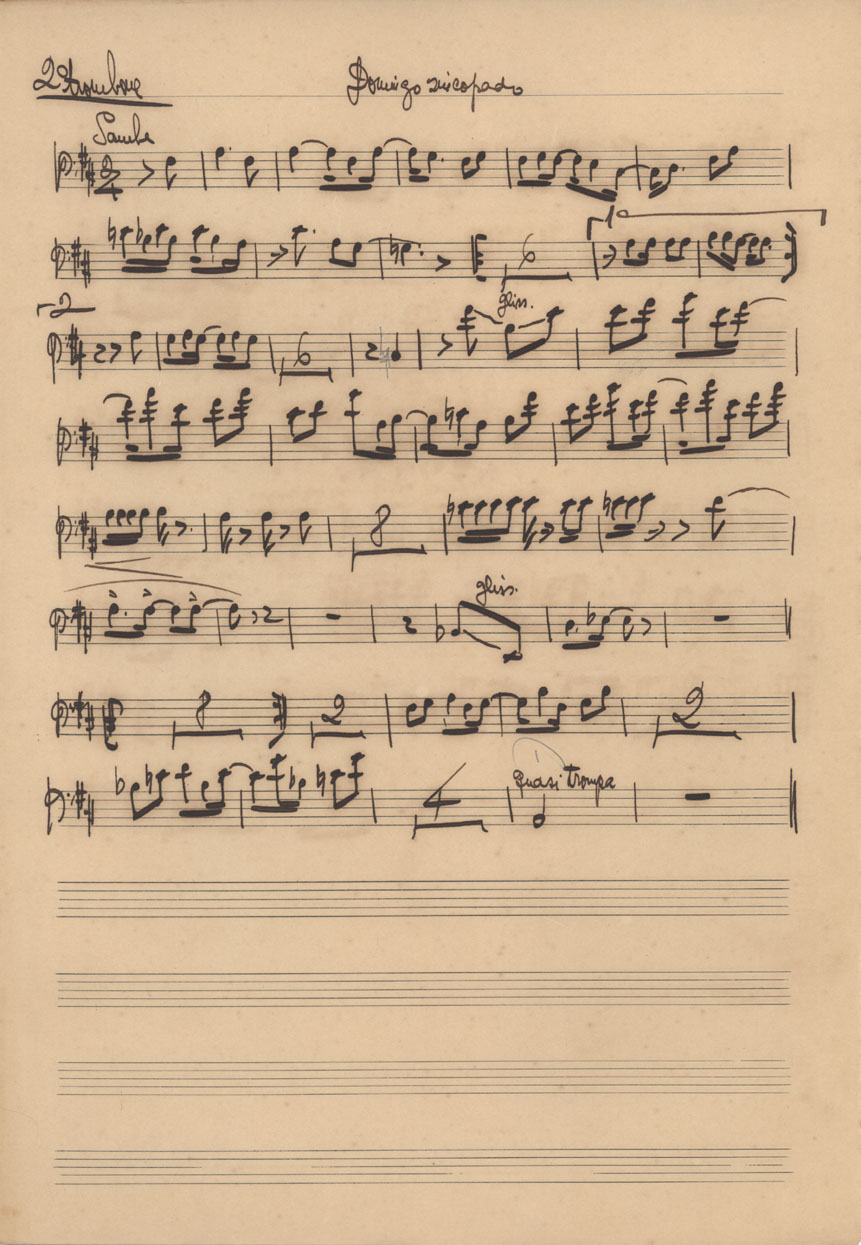 2º trombone Domingo sincopado
Samba
2
4
1a
6
2
6
gliss.
8
gliss.
8 2 2
quasi trompa
4